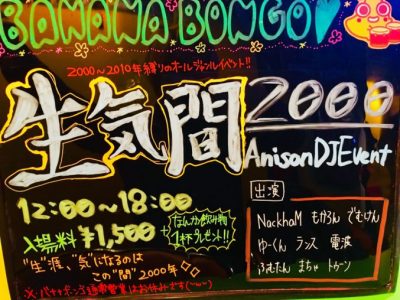 BANANA BONGO
2000〜2010年縛りのオールジャンルイベント!!
生気間2000
AnisonDJEvent
12:00〜18:00
入場料 ¥1,500 + なんか飲み物1杯プレゼント!!
"生"涯、"気"になるのは
この"間"2000年
出演
NackhaM もかろん でむけん
ゆーくん ランス 電波
ふむたん まちゃ トゥーン
※バナナボンゴ通常営業はお休みです(~o~)